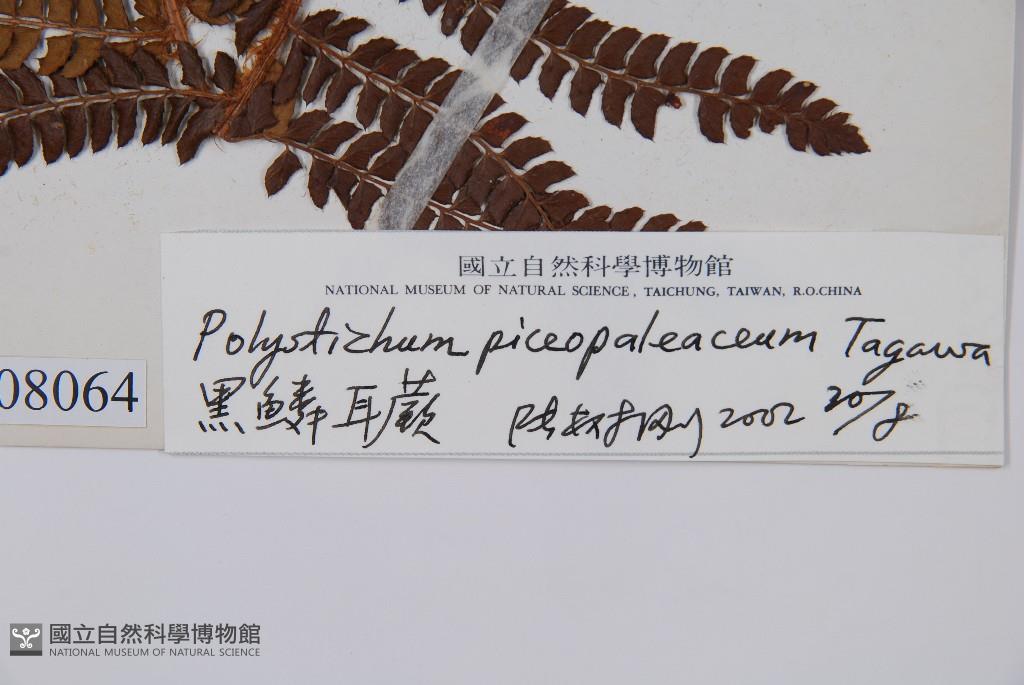 國立自然科學博物館
NATIONAL MUSEUM OF NATURAL SCIENCE, TAICHUNG, TAIWAN, R.O.CHINA
Polystichum piceopaleaceum Tagawa
08064
黑鱗耳蕨 2002 20/8
國立自然科學博物館
NATIONAL MUSEUM OF NATURAL SCIENCE